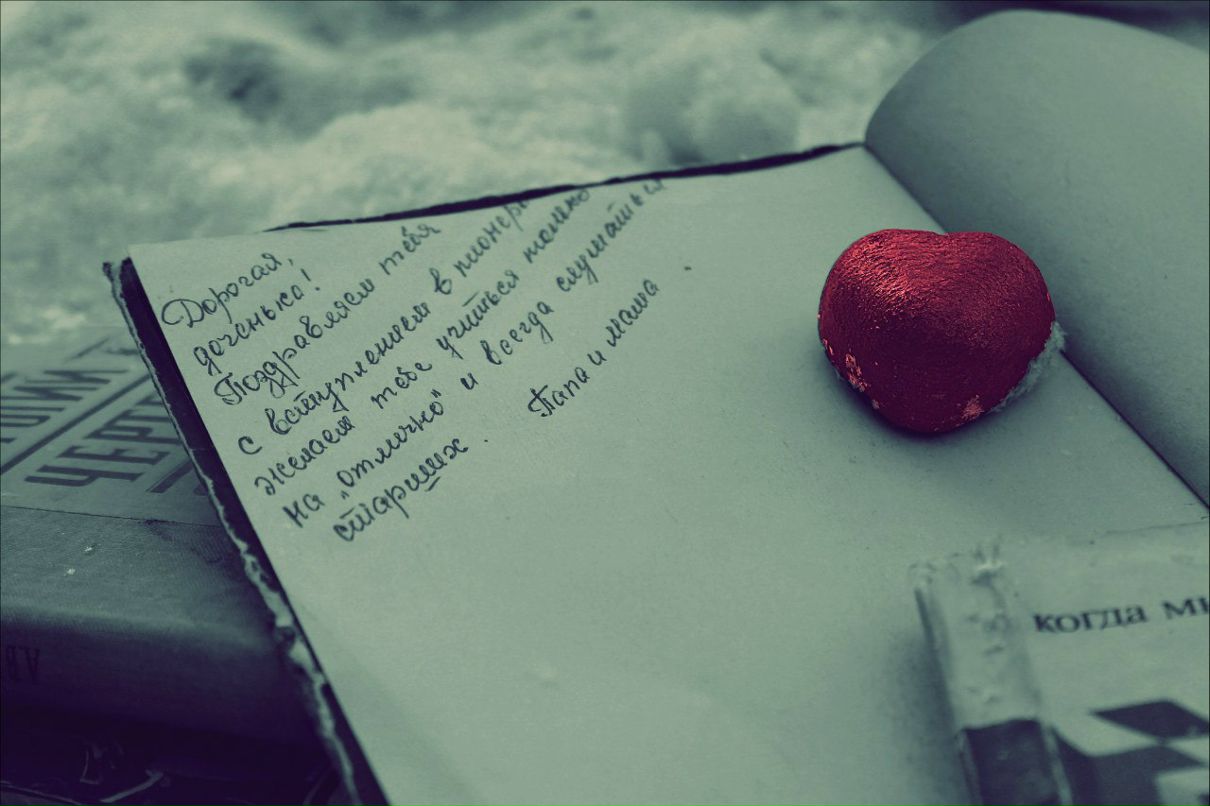 Дорогая,
доченька!
Поздравляем тебя
с вступлением в пионеры
желаем тебе учиться только
на „отлично" и всегда слушаться
старших.
Папа и мама
когда